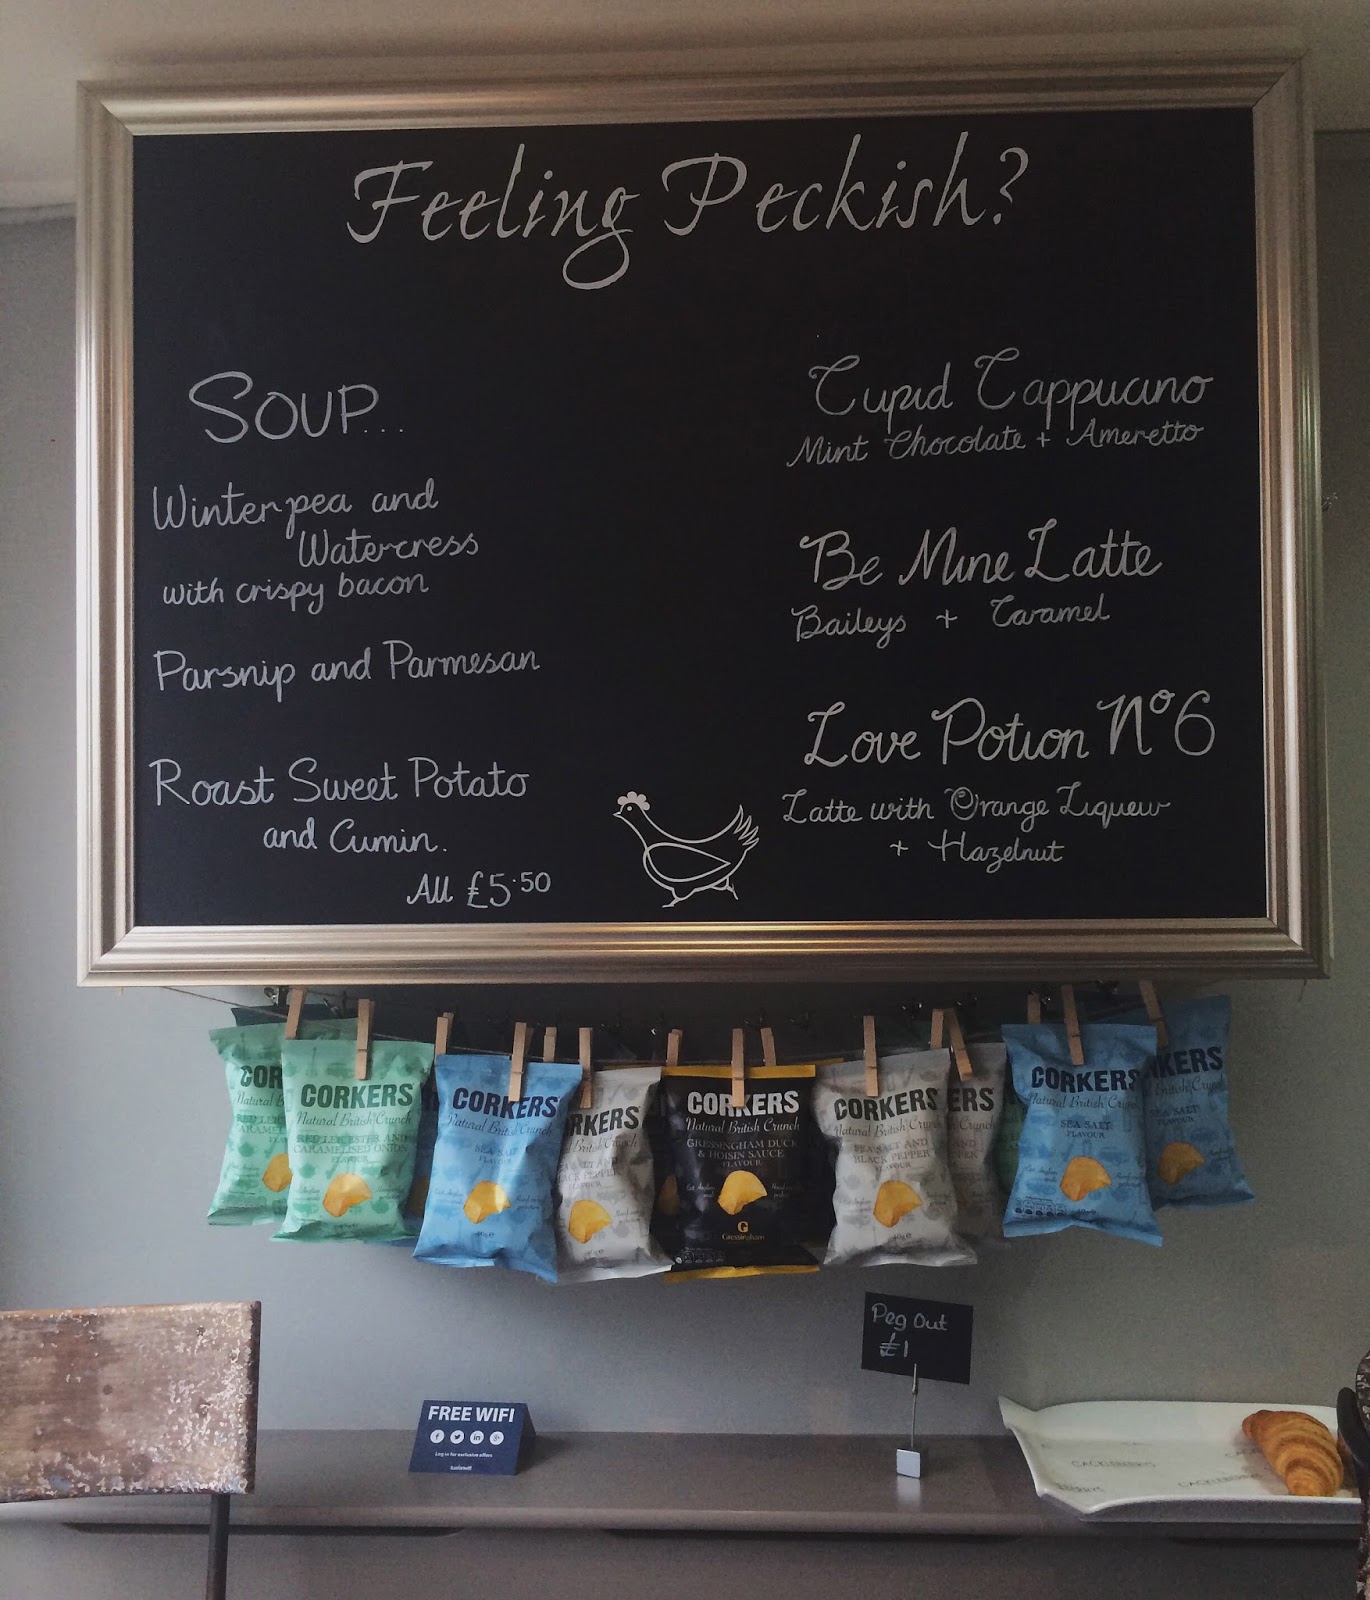 Feeling Peckish?
SOUP...
Winter pea and
Watercress
with crispy bacon
Parsnip and Parmesan
Roast Sweet Potato
and Cumin.
All £5.50
Cupid Cappucino
Mint Chocolate + Ameretto
Be Mine Latte
Baileys + Caramel
Love Potion Nº6
Latte with Orange Liqueur
+ Hazelnut
COR
CORKERS
Natural British Crunch
RED LEICESTER AND
CARAMELISED ONION
FLAVOUR
CORKERS
Natural British Crunch
SEA SALT
FLAVOUR
RKERS
Natural British Crunch
SEA SALT AND
BLACK PEPPER
FLAVOUR
CORKERS
Natural British Crunch
GRESSINGHAM DUCK
& HOISIN SAUCE
FLAVOUR
G
Gressingham
CORKERS
Natural British Crunch
SEA SALT AND
BLACK PEPPER
FLAVOUR
ERS
CORKERS
Natural British Crunch
SEA SALT
FLAVOUR
KERS
British Crunch
SEA SALT
FLAVOUR
Peg Out
£1
FREE WIFI
Log in for exclusive offers
CACKLEBERRYS